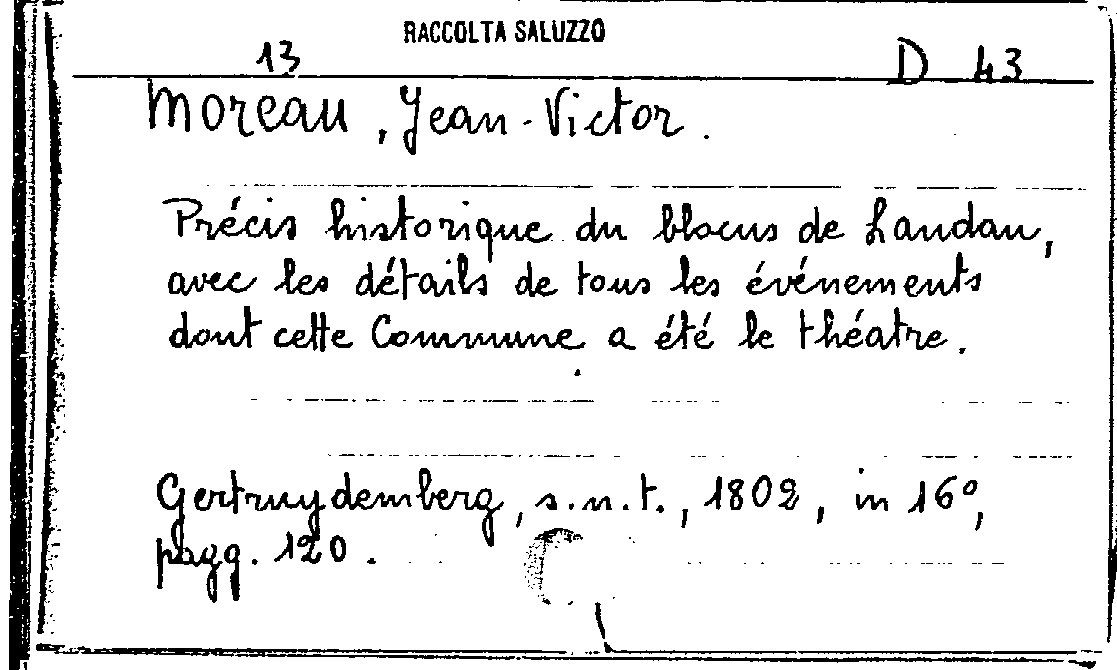 RACCOLTA SALUZZO
13 D 43
Moreau, Jean-Victor.
Précis historique du blocus de Landau,
avec les détails de tous les événements
dont cette Commune a été le théatre.
Gertruydemberg, s.n.t., 1802, in 16°,
pagg. 120.